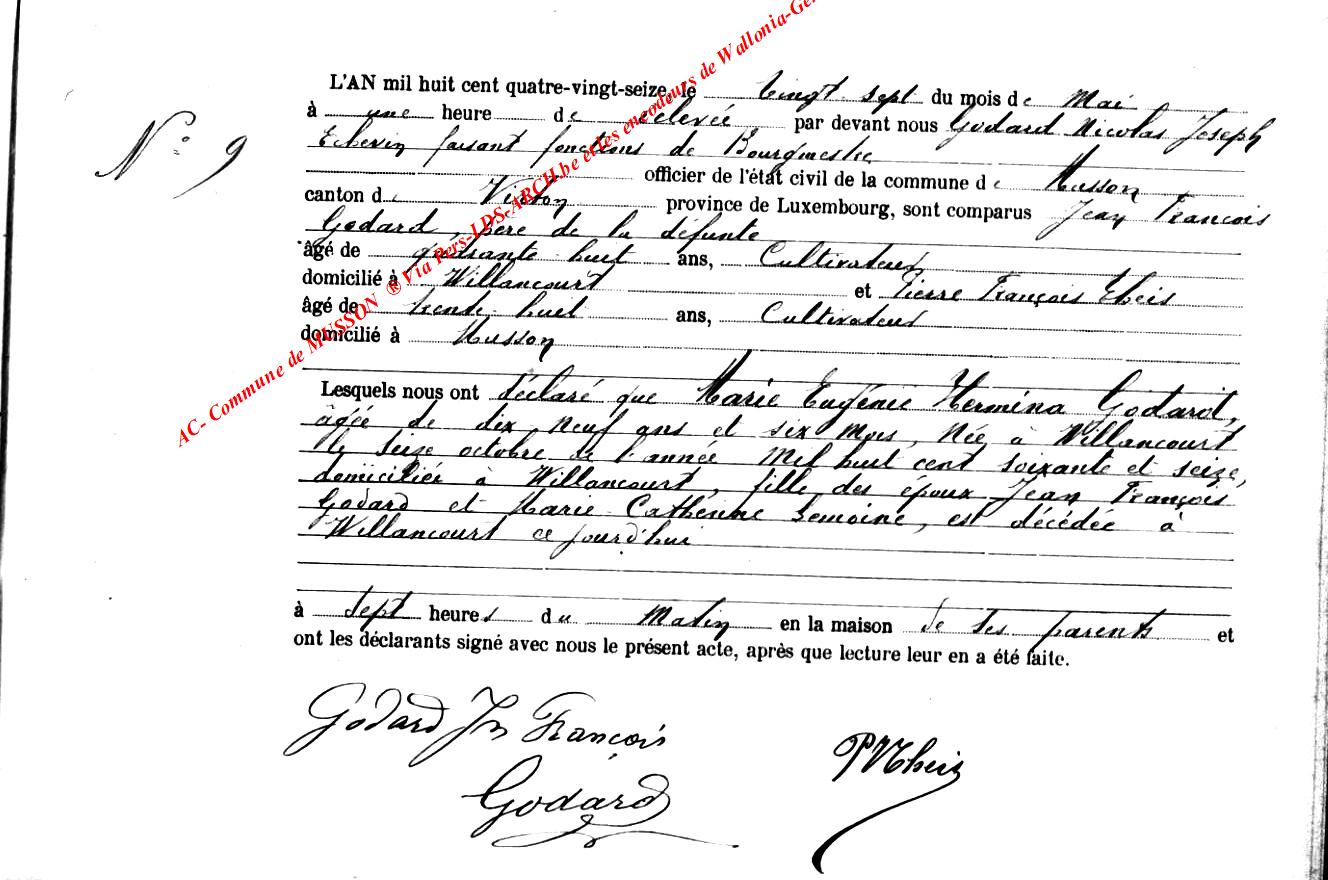 AC- Commune de MUSSON ® Via Pers-LDS-ARCH.be et les encodeurs de Wallonia-Ge
L'AN mil huit cent quatre-vingt-seize, le Vingt sept du mois de Mai
N° 9
à une heure de relevée par devant nous Godard Nicolas Joseph
Echevin faisant fonctions de Bourgmestre
officier de l'état civil de la commune de Musson
canton de Virton province de Luxembourg, sont comparus Jean François
Godard, père de la défunte
âgé de quarante huit ans, Cultivateur
domicilié à Willancourt et Pierre François
âgé de trente huit ans, Cultivateur
domicilié à Musson
Lesquels nous ont déclaré que Marie Eugénie Hermina Godard,
âgée de dix neuf ans et six mois, Née à Willancourt
le seize octobre de l'année Mil huit cent soixante et seize,
domiciliée à Willancourt, fille des époux Jean François
Godard et Marie Catherine Lemoine, est décédée à
Willancourt ce jourd'hui
à Sept heures du Matin en la maison de ses parents et
ont les déclarants signé avec nous le présent acte, après que lecture leur en a été faite.
Godard Jn François
Godard